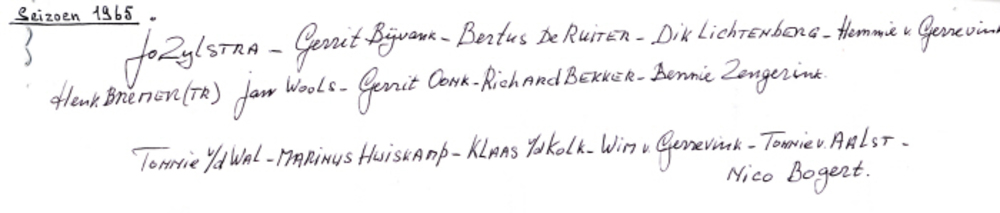 Seizoen 1965.
Jo ZylSTRA - Gerrit Bijvank - Bertus De RUITER - Dik LichTENBERG - Hemmie v. Gerrevink
Henk BREMER (TR) Jan Wools - Gerrit OONK - RicHARD BEKKER - Bennie Zengerink.
TOMMIE v/d WAL - MARINUS HUISKAMP - KLAAS v/d KOLK - WIM v. Gerrevink - TOMMIE v. AALST -
Nico Bogert.